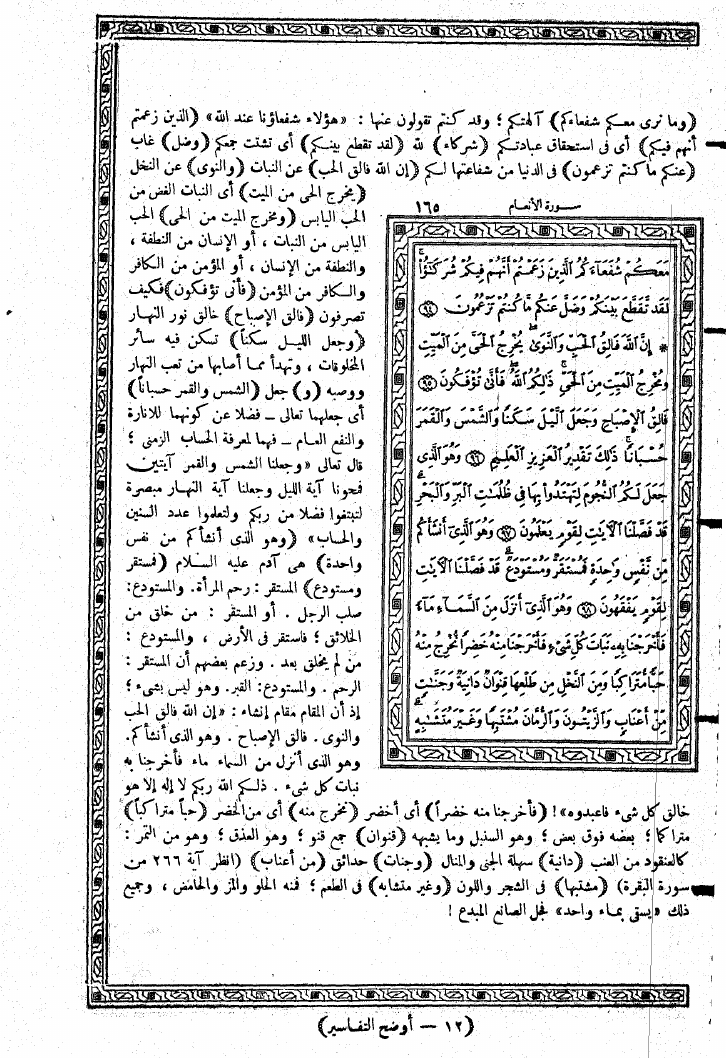 (وما نرى معكم شفعاءكم) آلهتكم ؛ وقد كنتم تقولون عنها : «هؤلاء شفعاؤنا عند الله» (الذين زعمتم
أنهم فيكم) أى فى استحقاق عبادتكم (شركاء) لله (لقد تقطع بينكم) أى تشتت جمعكم (وضل) غاب
(عنكم ما كنتم تزعمون) فى الدنيا من شفاعتها لكم (إن الله فالق الحب) عن النبات (والنوى) عن النخل
(يخرج الحى من الميت) أى النبات الغض من
الحب اليابس (ومخرج الميت من الحى) الحب
اليابس من النبات ، أو الإنسان من النطفة ،
والنطفة من الإنسان ، أو المؤمن من الكافر
والكافر من المؤمن (فأنى تؤفكون) فكيف
تصرفون (فالق الإصباح) خالق نور النهار
(وجعل الليل سكناً) تسكن فيه سائر
المخلوقات ، وتهدأ مما أصابها من تعب النهار
ووصبه (و) جعل (الشمس والقمر حسباناً)
أى جعلهما تعالى ــ فضلا عن كونهما للانارة
والنفع العام ــ فهما لمعرفة الحساب الزمنى ؛
قال تعالى «وجعلنا الشمس والقمر آيتين
فمحونا آية الليل وجعلنا آية النهار مبصرة
لتبتغوا فضلا من ربكم ولتعلموا عدد السنين
والحساب» (وهو الذى أنشأكم من نفس
واحدة) هى آدم عليه السلام (فمستقر
ومستودع) المستقر : رحم المرأة. والمستودع:
صلب الرجل . أو المستقر : من خلق من
الخلائق ؛ فاستقر فى الأرض ، والمستودع :
من لم يخلق بعد . وزعم بعضهم أن المستقر :
الرحم . والمستودع: القبر. وهو ليس بشىء ؛
إذ أن المقام مقام إنشاء : «إن الله فالق الحب
والنوى . فالق الإصباح . وهو الذى أنشأكم.
وهو الذى أنزل من السماء ماء فأخرجنا به
نبات كل شىء . ذلكم الله ربكم لا إله إلا هو
سورة الأنعام ١٦٥
مَعَكُمْ شُفَعَاءَكُمُ الَّذِينَ زَعَمْتُمْ أَنَّهُمْ فِيكُمْ شُرَكَٰٓؤُا۟
لَقَد تَّقَطَّعَ بَيْنَكُمْ وَضَلَّ عَنكُم مَّا كُنتُمْ تَزْعُمُونَ ﴿٩٤﴾
* إِنَّ اللَّهَ فَالِقُ الْحَبِّ وَالنَّوَىٰ يُخْرِجُ الْحَيَّ مِنَ الْمَيِّتِ
وَمُخْرِجُ الْمَيِّتِ مِنَ الْحَيِّ ذَٰلِكُمُ اللَّهُ فَأَنَّىٰ تُؤْفَكُونَ ﴿٩٥﴾
فَالِقُ الْإِصْبَاحِ وَجَعَلَ الَّيْلَ سَكَنًا وَالشَّمْسَ وَالْقَمَرَ
حُسْبَانًا ذَٰلِكَ تَقْدِيرُ الْعَزِيزِ الْعَلِيمِ ﴿٩٦﴾ وَهُوَ الَّذِي
جَعَلَ لَكُمُ النُّجُومَ لِتَهْتَدُوا بِهَا فِي ظُلُمَٰتِ الْبَرِّ وَالْبَحْرِ
قَدْ فَصَّلْنَا الْآيَٰتِ لِقَوْمٍ يَعْلَمُونَ ﴿٩٧﴾ وَهُوَ الَّذِي أَنشَأَكُم
مِّن نَّفْسٍ وَٰحِدَةٍ فَمُسْتَقَرٌّ وَمُسْتَوْدَعٌ قَدْ فَصَّلْنَا الْآيَٰتِ
لِقَوْمٍ يَفْقَهُونَ ﴿٩٨﴾ وَهُوَ الَّذِي أَنزَلَ مِنَ السَّمَاءِ مَاءً
فَأَخْرَجْنَا بِهِ نَبَاتَ كُلِّ شَيْءٍ فَأَخْرَجْنَا مِنْهُ خَضِرًا نُّخْرِجُ مِنْهُ
حَبًّا مُّتَرَاكِبًا وَمِنَ النَّخْلِ مِن طَلْعِهَا قِنْوَانٌ دَانِيَةٌ وَجَنَّٰتٍ
مِّنْ أَعْنَابٍ وَالزَّيْتُونَ وَالرُّمَّانَ مُشْتَبِهًا وَغَيْرَ مُتَشَٰبِهٍ
خالق كل شىء فاعبدوه»! (فأخرجنا منه خضراً) أى أخضر (نخرج منه) أى من الخضر (حباً متراكباً)
متراكما ؛ بعضه فوق بعض ؛ وهو السنبل وما يشبهه (قنوان) جمع قنو ؛ وهو العذق ؛ وهو من التمر :
كالعنقود من العنب (دانية) سهلة الجنى والمنال (وجنات) حدائق (من أعناب) (انظر آية ٢٦٦ من
سورة البقرة) (مشتبها) فى الشجر واللون (وغير متشابه) فى الطعم ؛ فمنه الحلو والمز والحامض ، وجميع
ذلك «يسقى بماء واحد» فجل الصانع المبدع !
(١٢ — أوضح التفاسير)